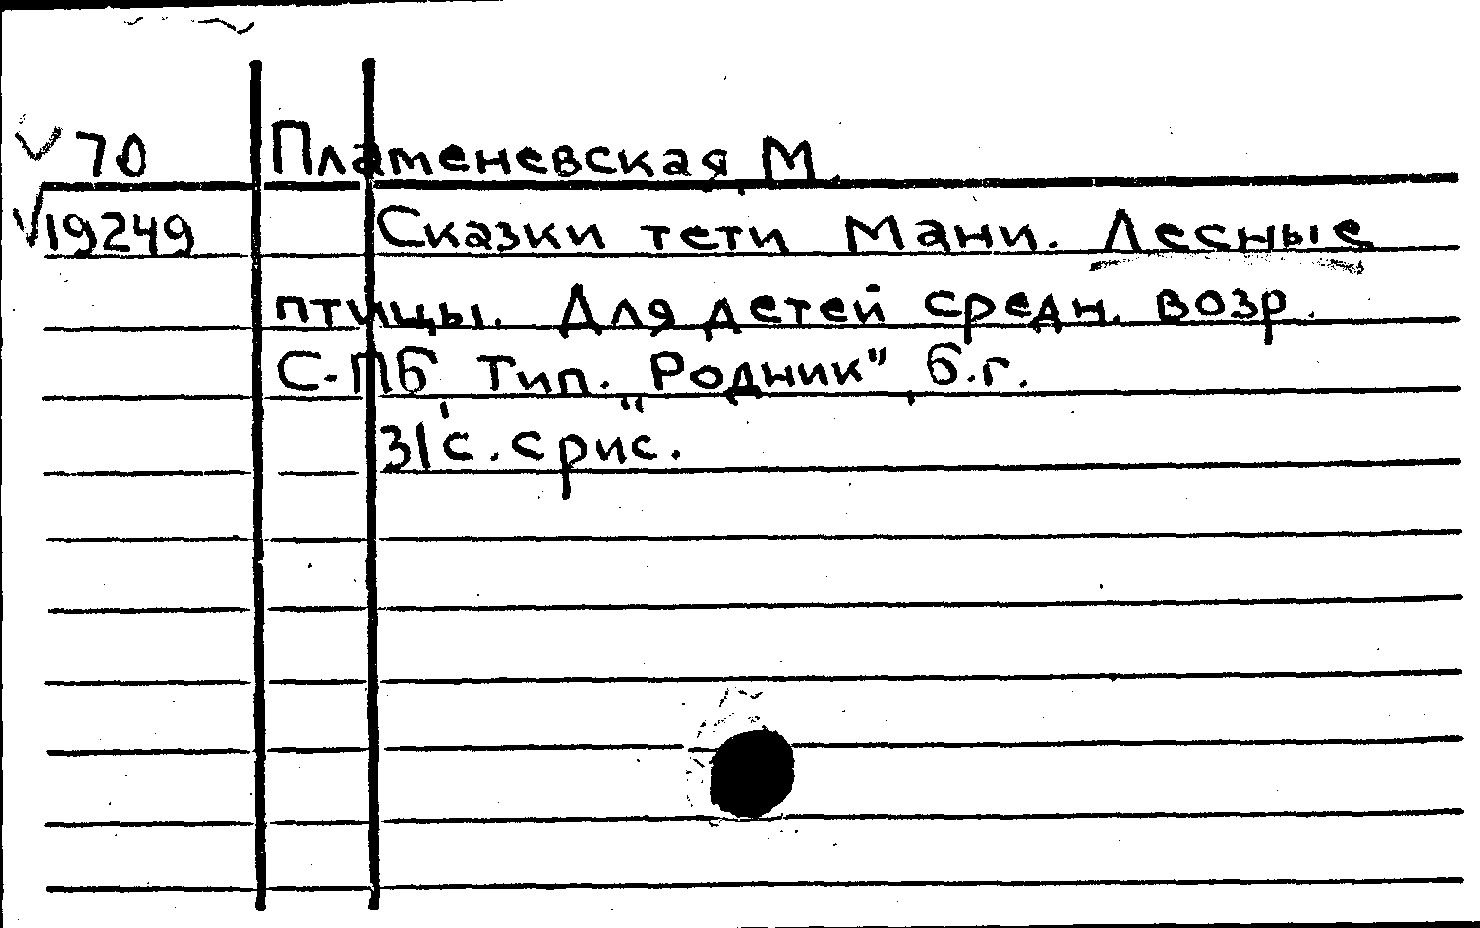 70 Платеневская, М.
19249 Сказки тети Мани. Лесные
птицы. Для детей средн. возр.
С-ПБ, Тип. „Родник", б.г.
31 с. с рис.